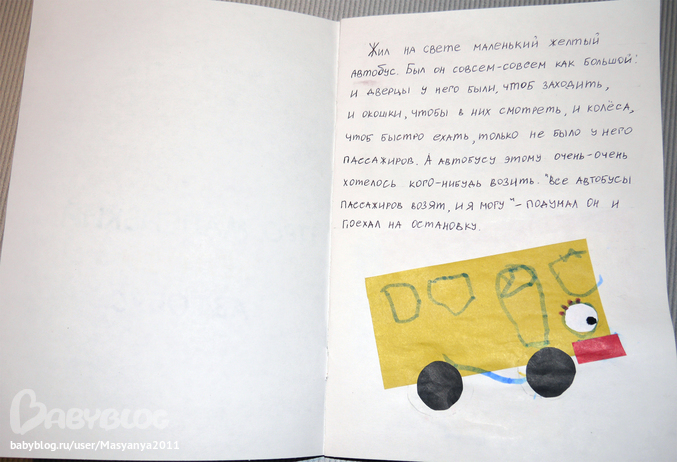 Жил на свете маленький желтый
автобус. Был он совсем-совсем как большой:
и дверцы у него были, чтоб заходить,
и окошки, чтобы в них смотреть, и колёса,
чтоб быстро ехать, только не было у него
пассажиров. А автобусу этому очень-очень
хотелось кого-нибудь возить. "Все автобусы
пассажиров возят, и я могу" - подумал он и
поехал на остановку.
BABYBLOG
babyblog.ru/user/Masyanya2011